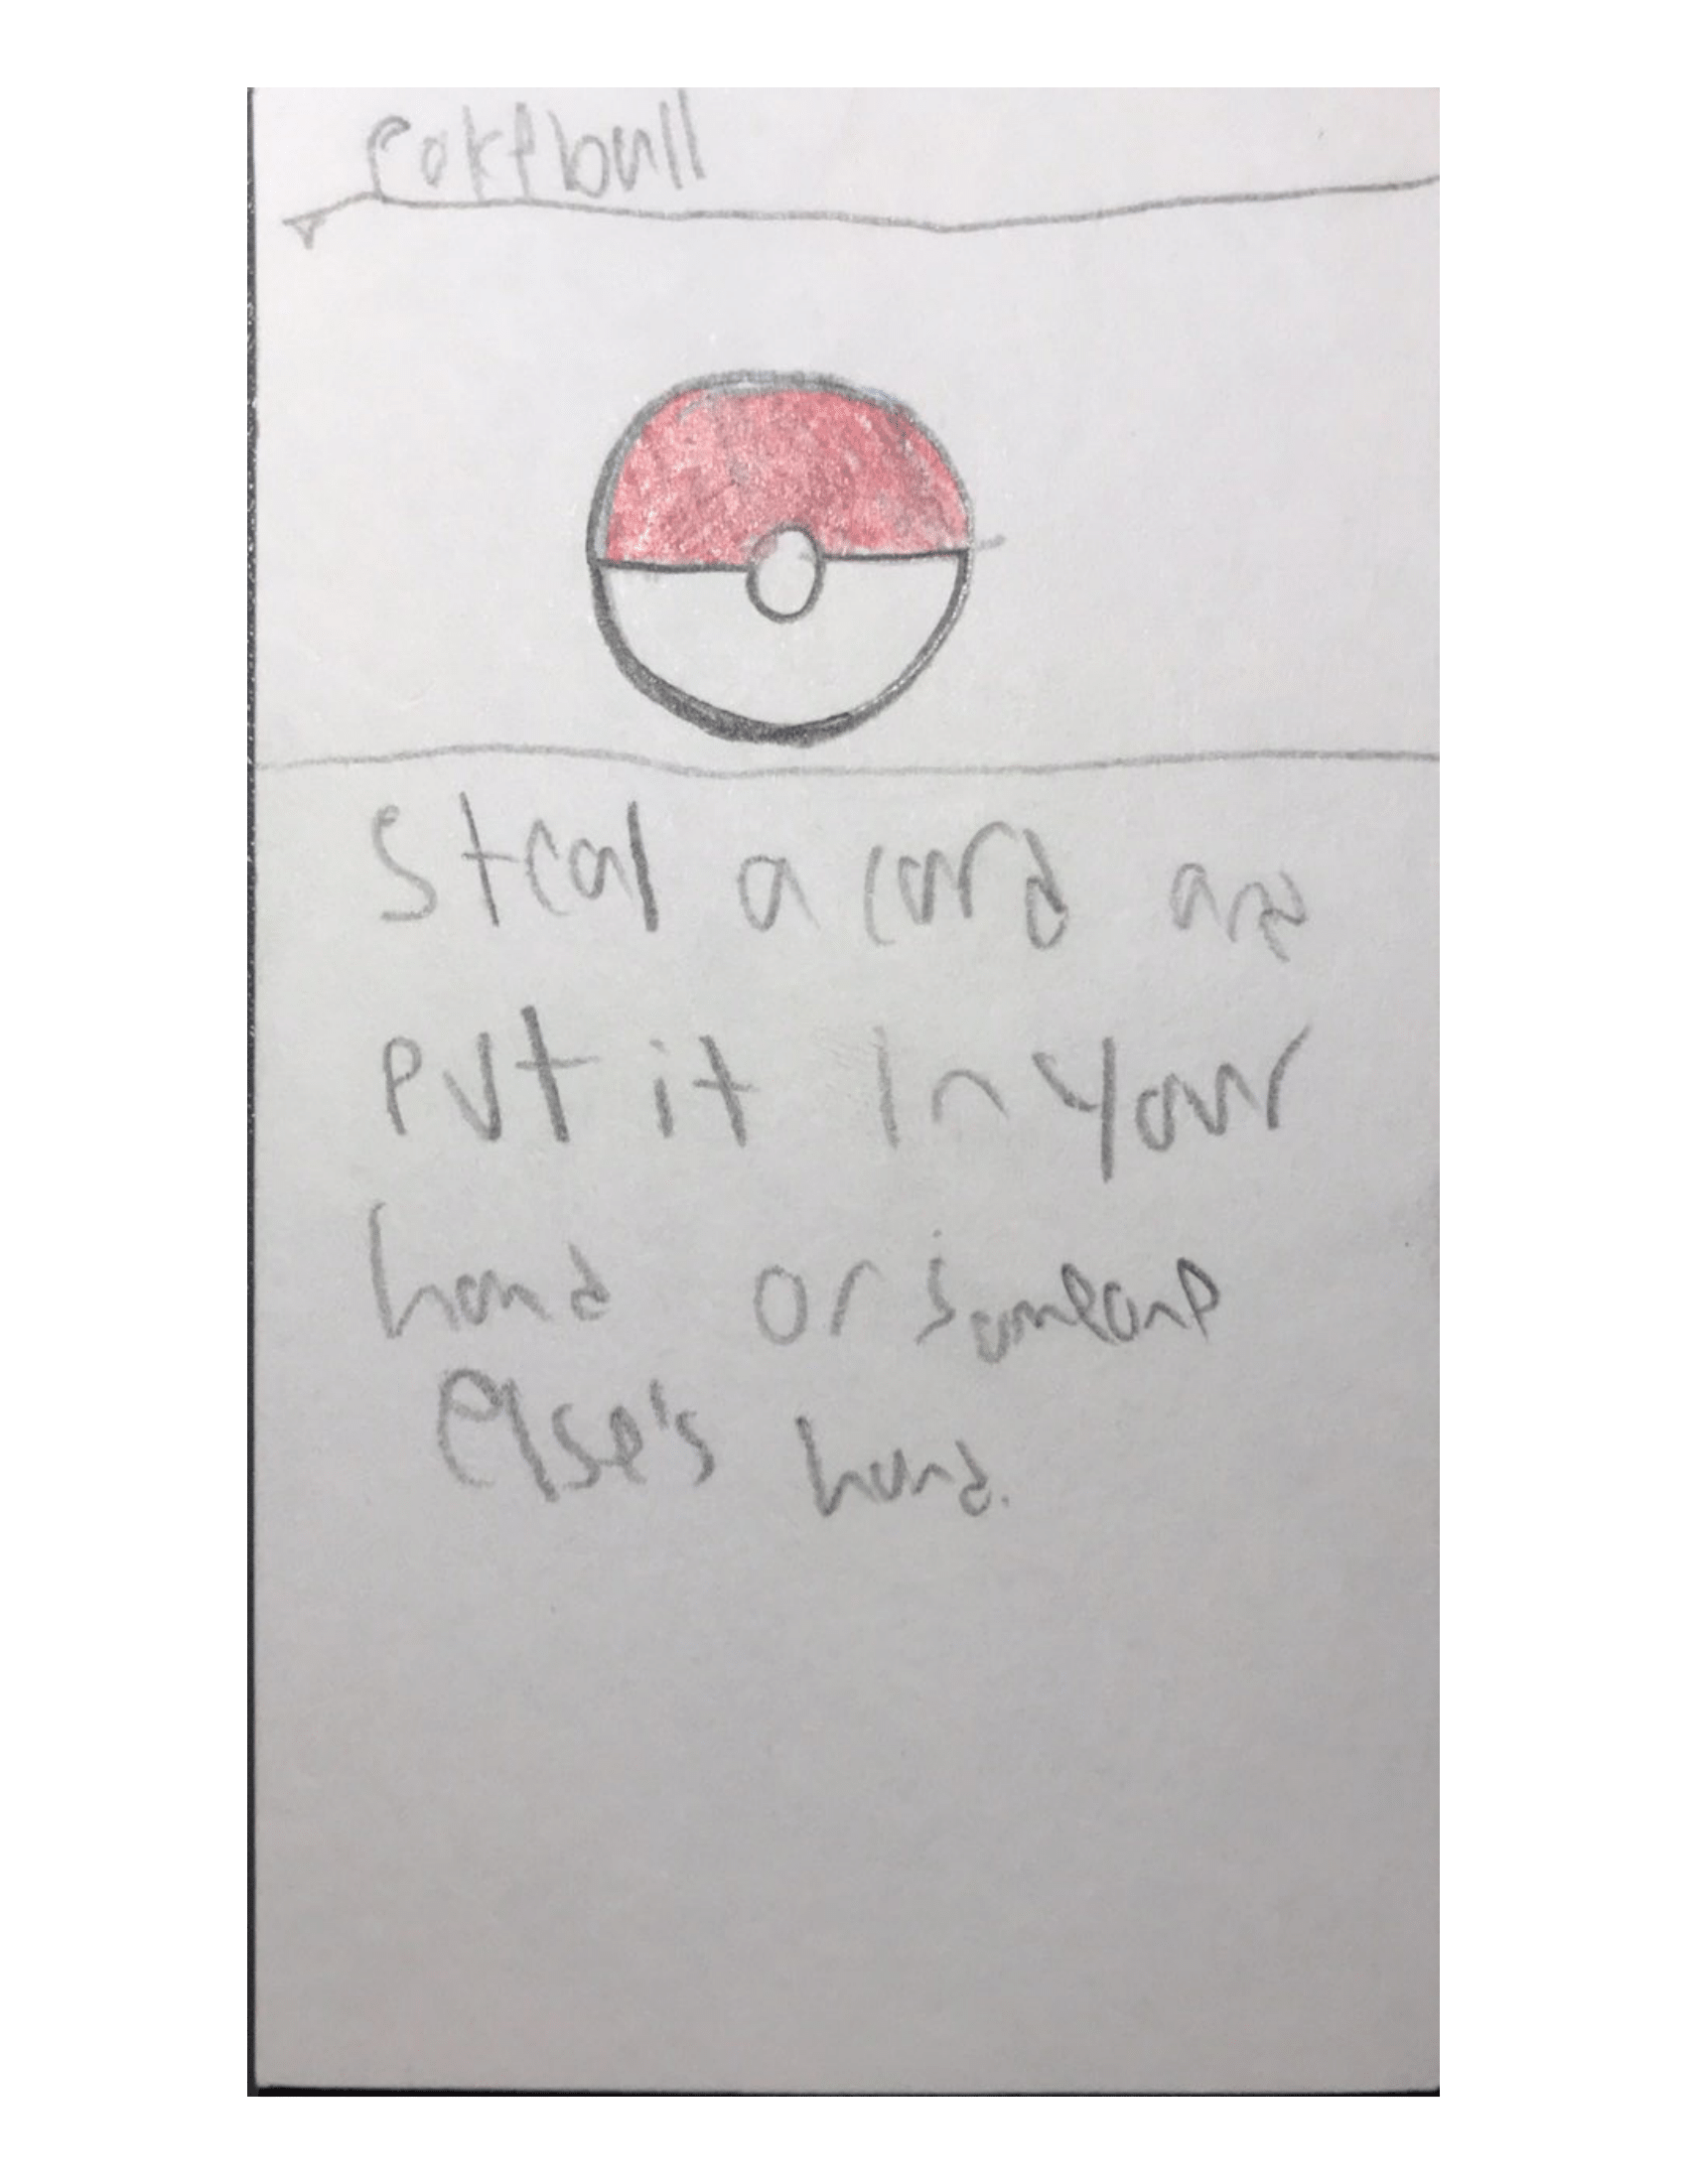 Pokeball
Steal a card and
put it in your
hand or someone
else's hand.